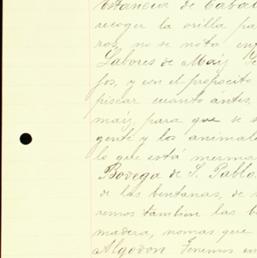 Estancia de Caba
recoger la orilla pa
ros, no se nota en
Labores de Maíz
fos, y con el proposito
piscar cuanto ántes,
maíz, para que se s
gente y los animale
lo que está merma
Bodega de S. Pablo
de las bentanas, de
remos tambien las b
madera, nomas que
Algodon. Tenemos en